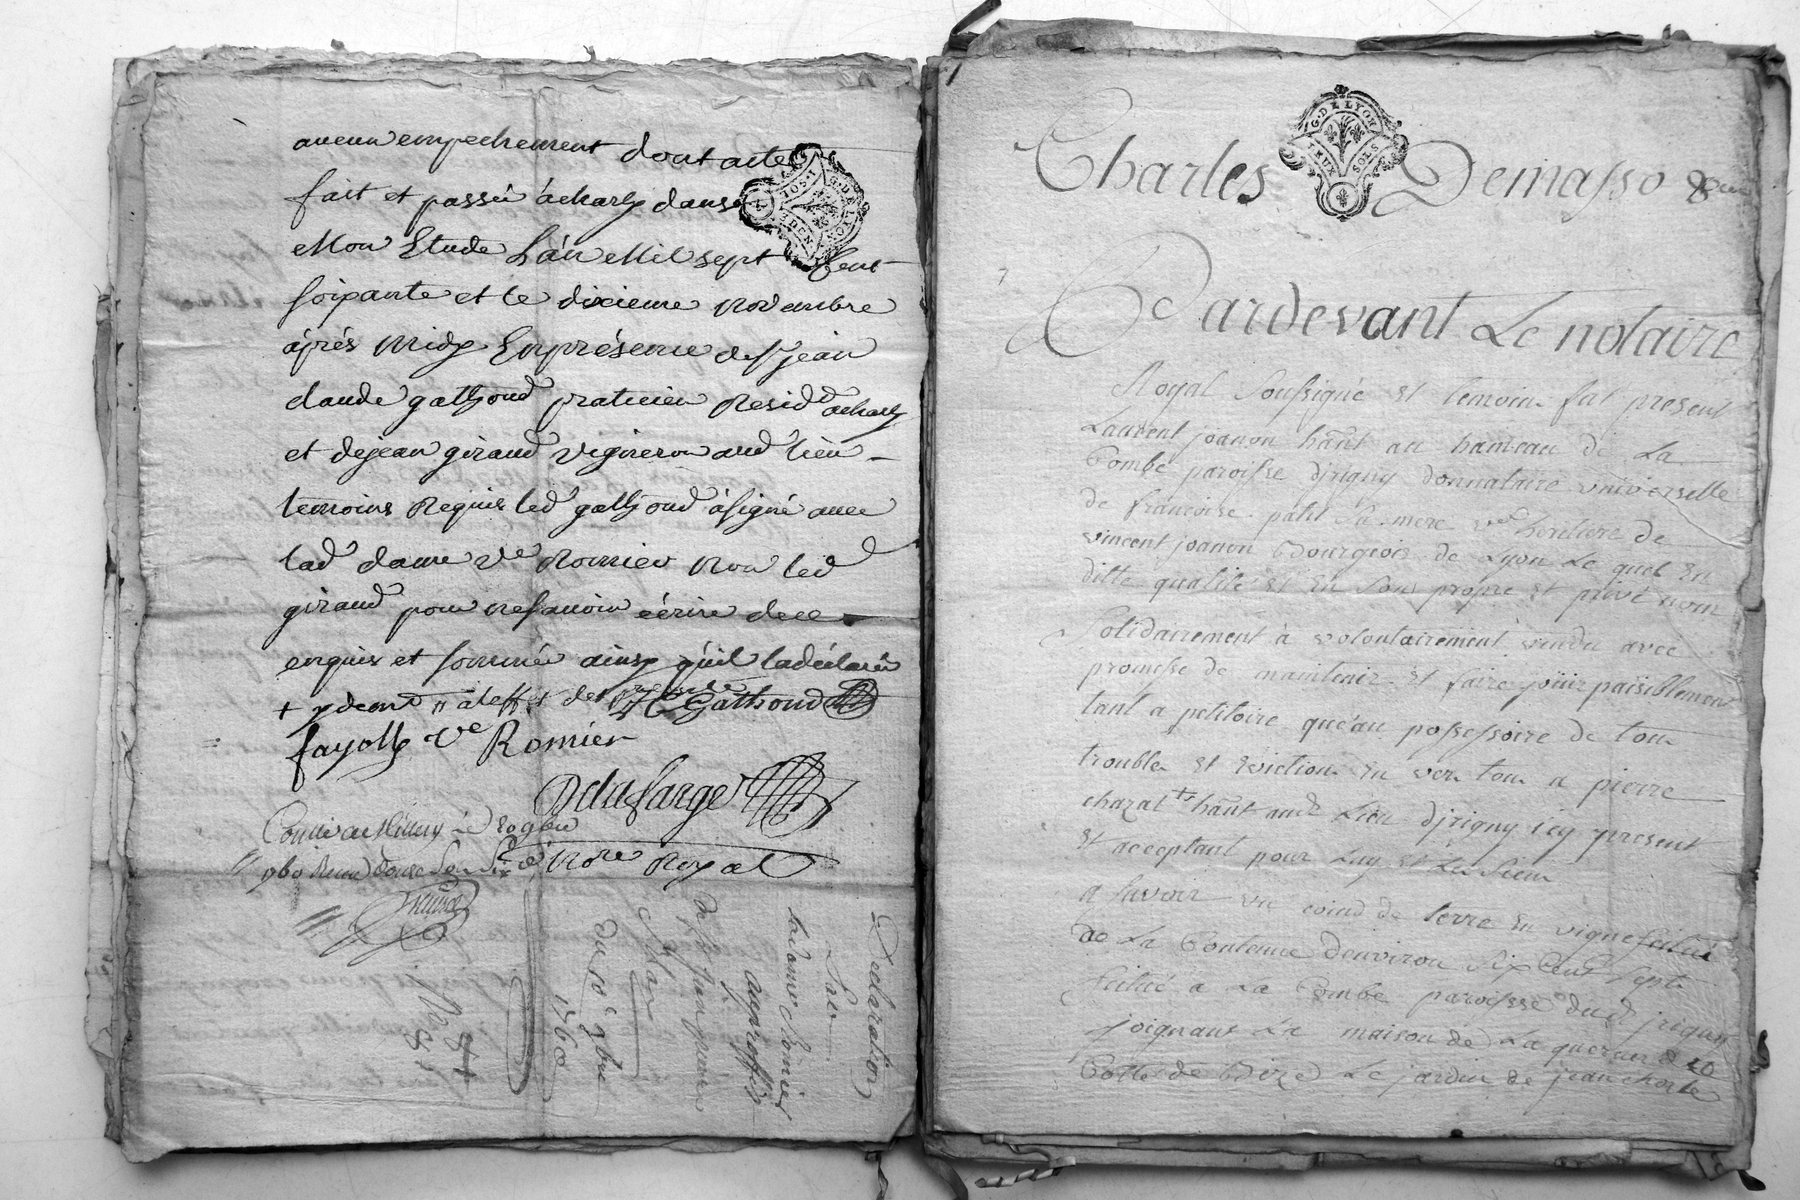 aucun empechement dont acte
fait et passé à charly dans
Mon Etude L'an Mil sept Cent
soixante et le dixieme novembre
aprés Midy En présence de sr jean
claude gathoud praticien Residt acharly
et de jean giraud vigneron aud lieu
temoins Requis led gathoud à signé avec
lad dame ve Romier Non led
giraud pour ne savoir écrire de ce
enquis et sommé ainsy qu'il la déclaré
Gathoud
fayolle ve Romier
Delafarge
Nore Royal
Controllé à Millery Le 20 9bre
1760 Reçu douze sols
Declaration
par
la dame Romier
Du 10e 9bre
1760
G. DE LYON
DEUX SOLS
Charles Demasso
Pardevant Le notaire
Royal Soussigné et temoin fut present
Laurent joanon habnt au hameau de La
Combe paroisse djrigny donnataire universelle
de francoise patit sa mere ved heritiere de
vincent joanon Bourgeois de Lyon Le quel En
ditte qualité et En son propre et privé nom
Solidairement à volontairement vendu avec
promesse de maintenir et faire joüir paisiblement
tant a petitoire qu'au possessoire de tous
troubles et Eviction En vers tous a pierre
chazal habnt aud Lieu djrigny icy present
et acceptant pour Luy et Les Siens
a Savoir un coind de terre En vigne scitué
de La Contenue denviron Six Cent Sept
scitué a La Combe paroisse dud jrigny
joignant La maison de La
Cotté de Bize Le jardin de jean